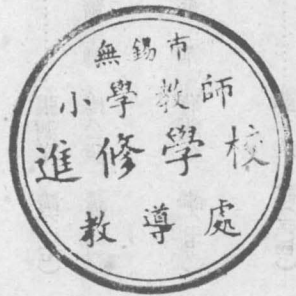 無錫市
小學教師
進修學校
教導處